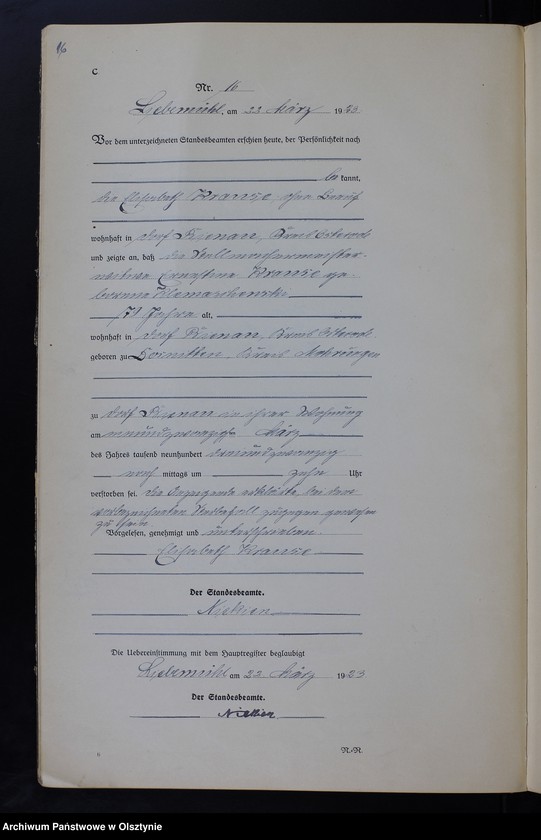 16
C
Nr. 16
Liebemühl, am 22 März 1923
Vor dem unterzeichneten Standesbeamten erschien heute, der Persönlichkeit nach
be kannt,
die Elisabeth Krause, ohne Beruf
wohnhaft in Dorf Kreis Osterode
und zeigte an, daß die
witwe Ernestine Krause ge-
borene
71 Jahre alt,
wohnhaft in Dorf Kreis Osterode
geboren zu Kreis Mohrungen
zu Dorf in ihrer Wohnung
am März
des Jahres tausend neunhundert dreiundzwanzig
nach mittags um zehn Uhr
verstorben sei. die Anzeigende erklärte, bei dem
vorbezeichneten Sterbefall zugegen gewesen
zu sein
Vorgelesen, genehmigt und unterschrieben.
Elisabeth Krause
Der Standesbeamte.
Die Uebereinstimmung mit dem Hauptregister beglaubigt
Liebemühl am 22 März 1923
Der Standesbeamte.
N.-R.
Archiwum Państwowe w Olsztynie